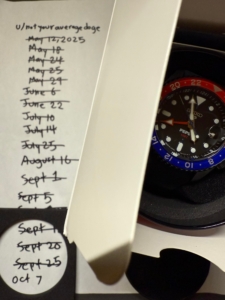 u/notyouraveragedoge
May 12, 2025
May 18
May 24
May 25
May 29
June 6
June 22
July 10
July 14
July 25
August 16
Sept 1
Sept 5
Sept 20
Sept 25
Oct 7
22
20
18
16
14
12
10
8